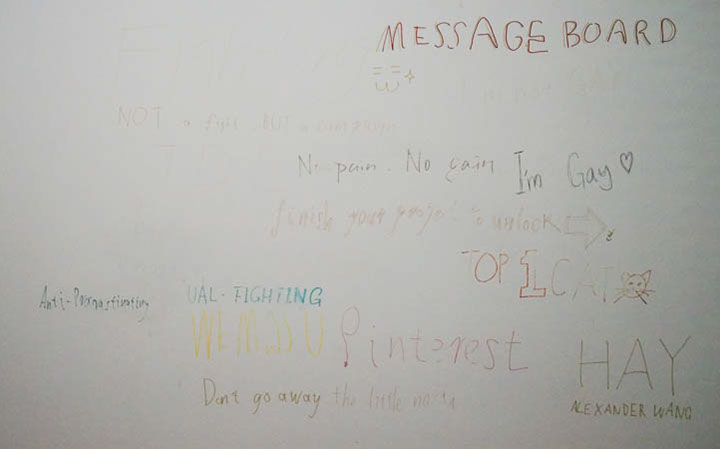 MESSAGE BOARD
I'm not
NOT a fight, BUT a
No pain. No gain
I'm Gay
finish your project to unlock
TOP 1 CAT
Anti-Procrastinating
UAL-FIGHTING
WE MISS U
Pinterest
HAY
Don't go away the little
ALEXANDER WANG